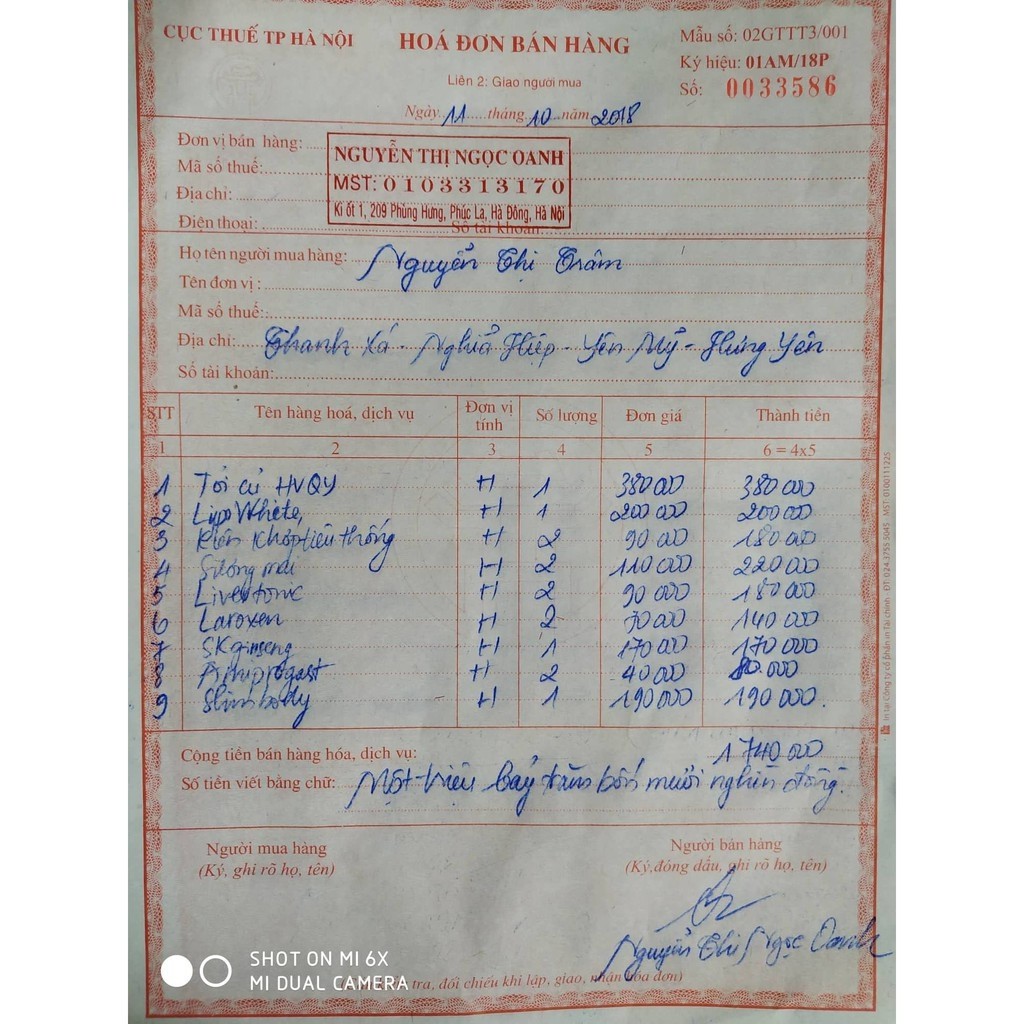 CỤC THUẾ TP HÀ NỘI
HOÁ ĐƠN BÁN HÀNG
Mẫu số: 02GTTT3/001
Ký hiệu: 01AM/18P
Liên 2: Giao người mua
Số: 0033586
Ngày 11 tháng 10 năm 2018
Đơn vị bán hàng:
NGUYỄN THỊ NGỌC OANH
Mã số thuế:
MST: 0103313170
Địa chỉ:
Ki ốt 1, 209 Phùng Hưng, Phúc La, Hà Đông, Hà Nội
Điện thoại: Số tài khoản:
Họ tên người mua hàng: Nguyễn Thị Trâm
Tên đơn vị:
Mã số thuế:
Địa chỉ: Thanh Xá - Nghĩa Hiệp - Yên Mỹ - Hưng Yên
Số tài khoản:
STT Tên hàng hoá, dịch vụ Đơn vị tính Số lượng Đơn giá Thành tiền
1 2 3 4 5 6 = 4x5
1 Tỏi củ HVQY H 1 380 000 380 000
2 Lipo White H 1 200 000 200 000
3 Khớp tiêu thống H 2 90 000 180 000
4 H 2 110 000 220 000
5 Livertonic H 2 90 000 180 000
6 Laroxen H 2 70 000 140 000
7 SK ginseng H 1 170 000 170 000
8 H 2 40 000 80.000
9 Slim body H 1 190 000 190 000.
Cộng tiền bán hàng hóa, dịch vụ: 1 740 000
Số tiền viết bằng chữ: Một triệu bảy trăm bốn mươi nghìn đồng.
Người mua hàng
(Ký, ghi rõ họ, tên)
Người bán hàng
(Ký, đóng dấu, ghi rõ họ, tên)
Nguyễn Thị Ngọc Oanh
tra, đối chiếu khi lập, giao, nhận hóa đơn)
SHOT ON MI 6X
MI DUAL CAMERA
In tại Công ty cổ phần in Tài chính - ĐT: 024.3755 5045 - MST: 0100111225